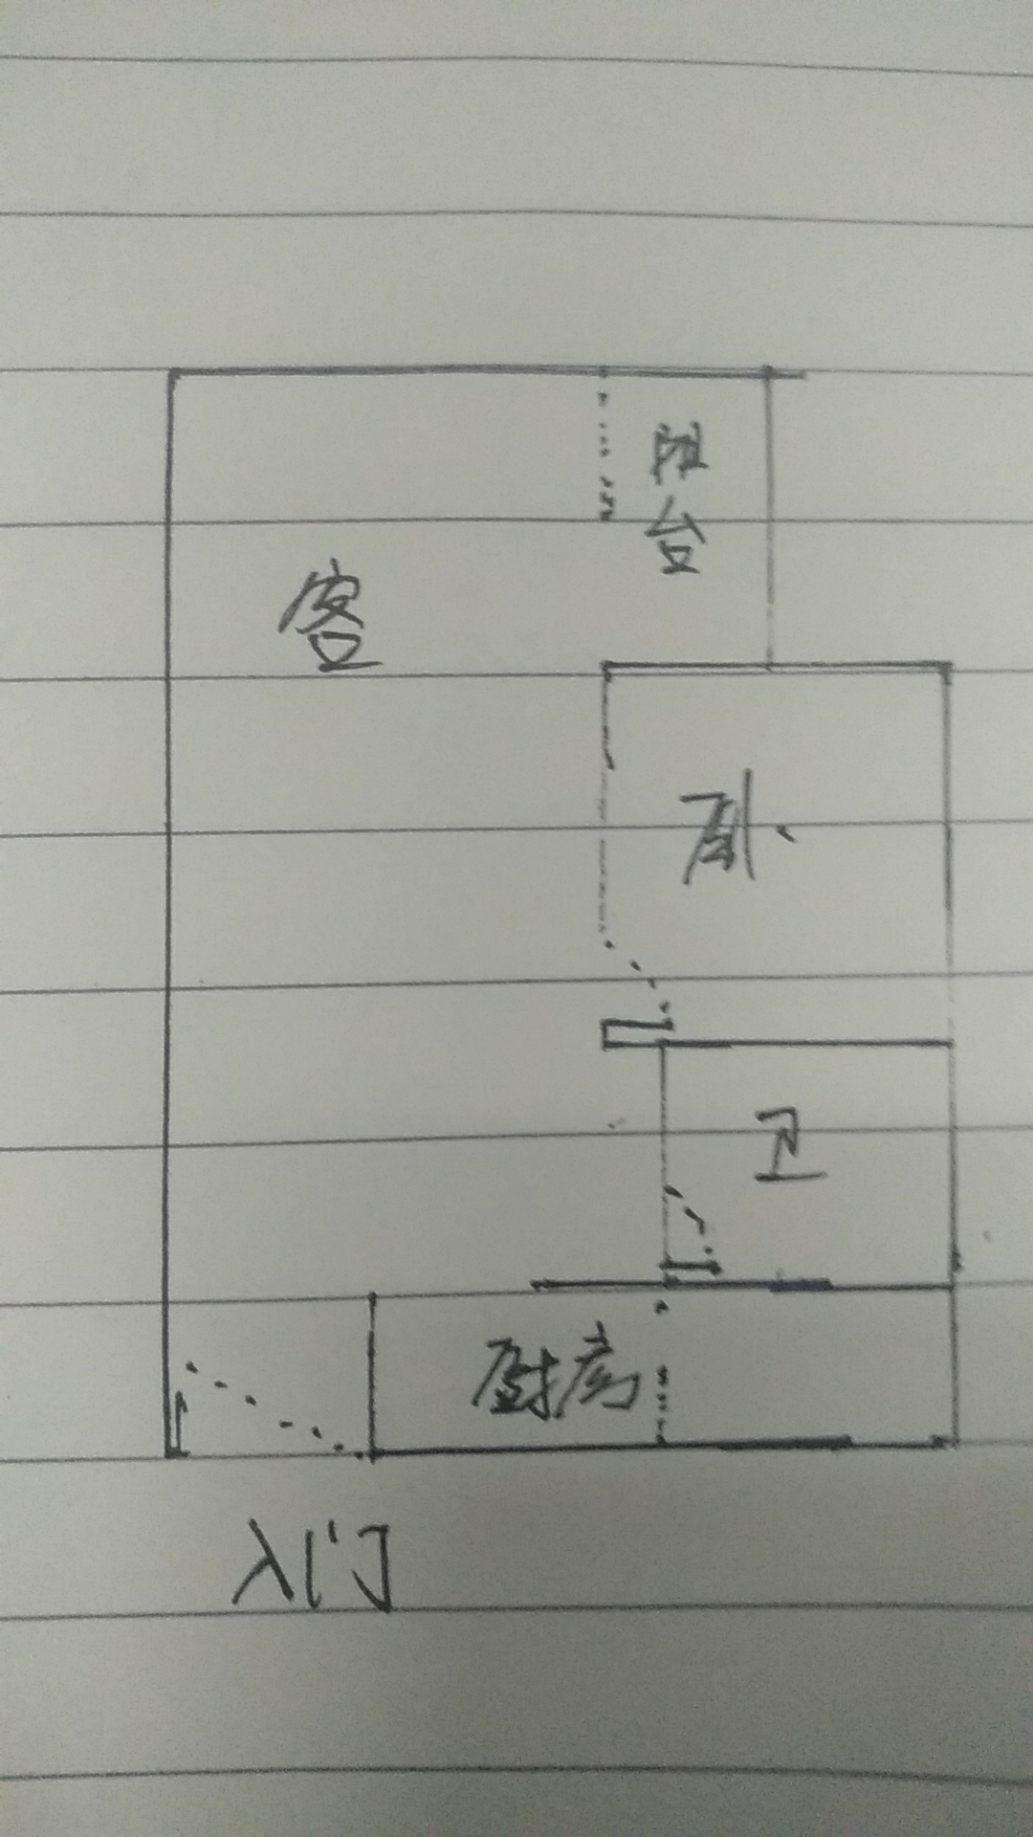 阳台
客
卧
卫
厨房
入门